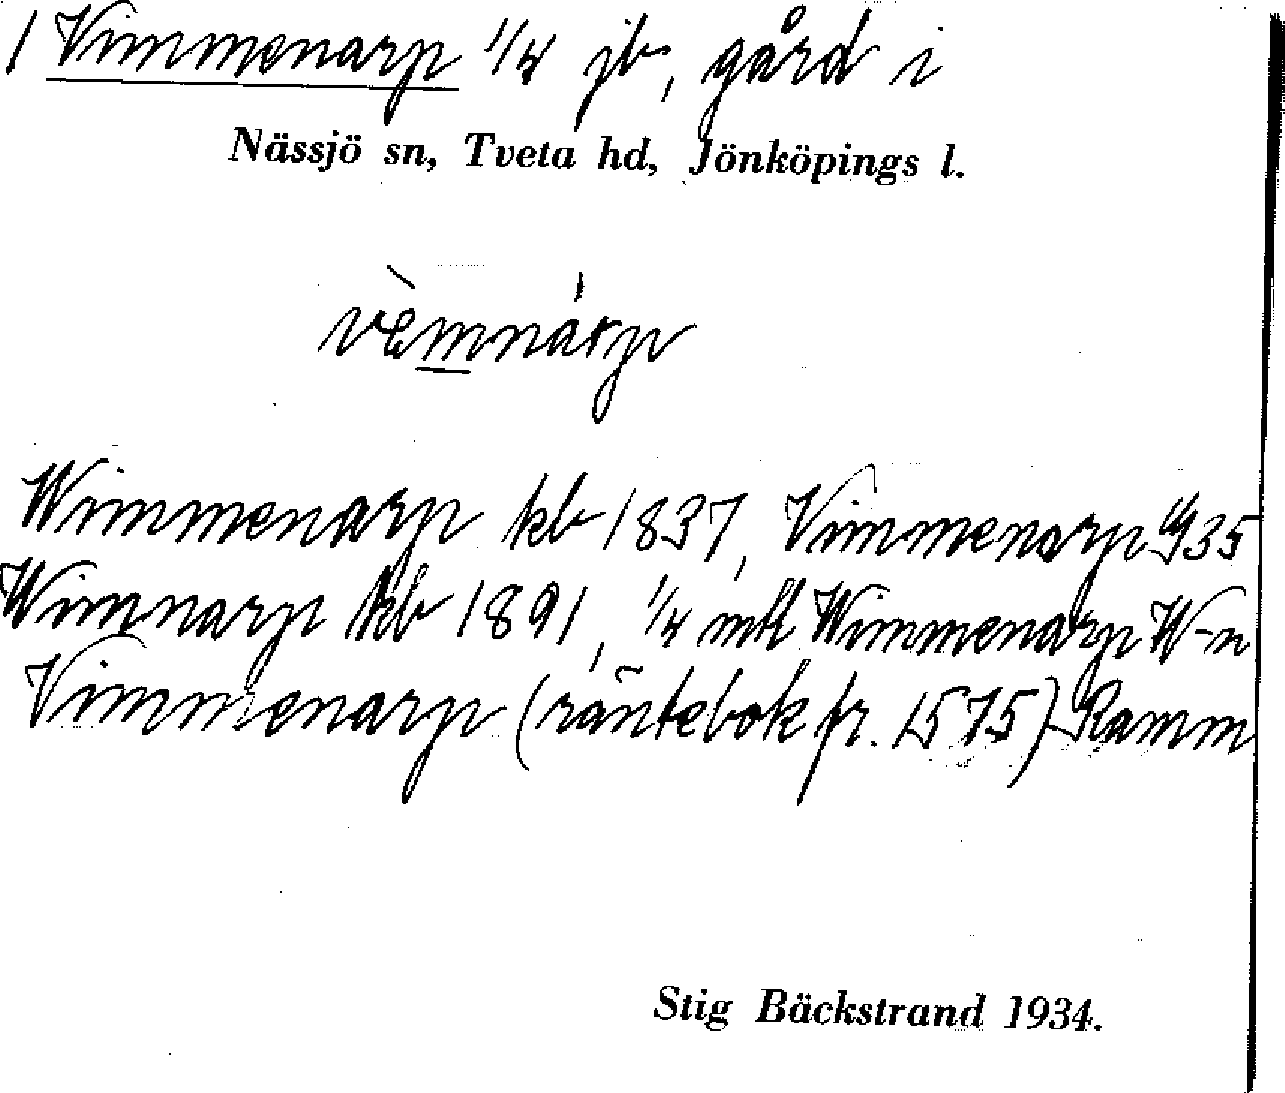 / Vimmenarp 1/4 jb, gård i
Nässjö sn, Tveta hd, Jönköpings l.
vèmnárp
Wimmenarp kb 1837, Vimmenarp 1935
Wimnarp kb 1891, 1/4 mtl Wimmenarp W-n
Vimmenarp (räntebok fr. 1575) Ramm
Stig Bäckstrand 1934.